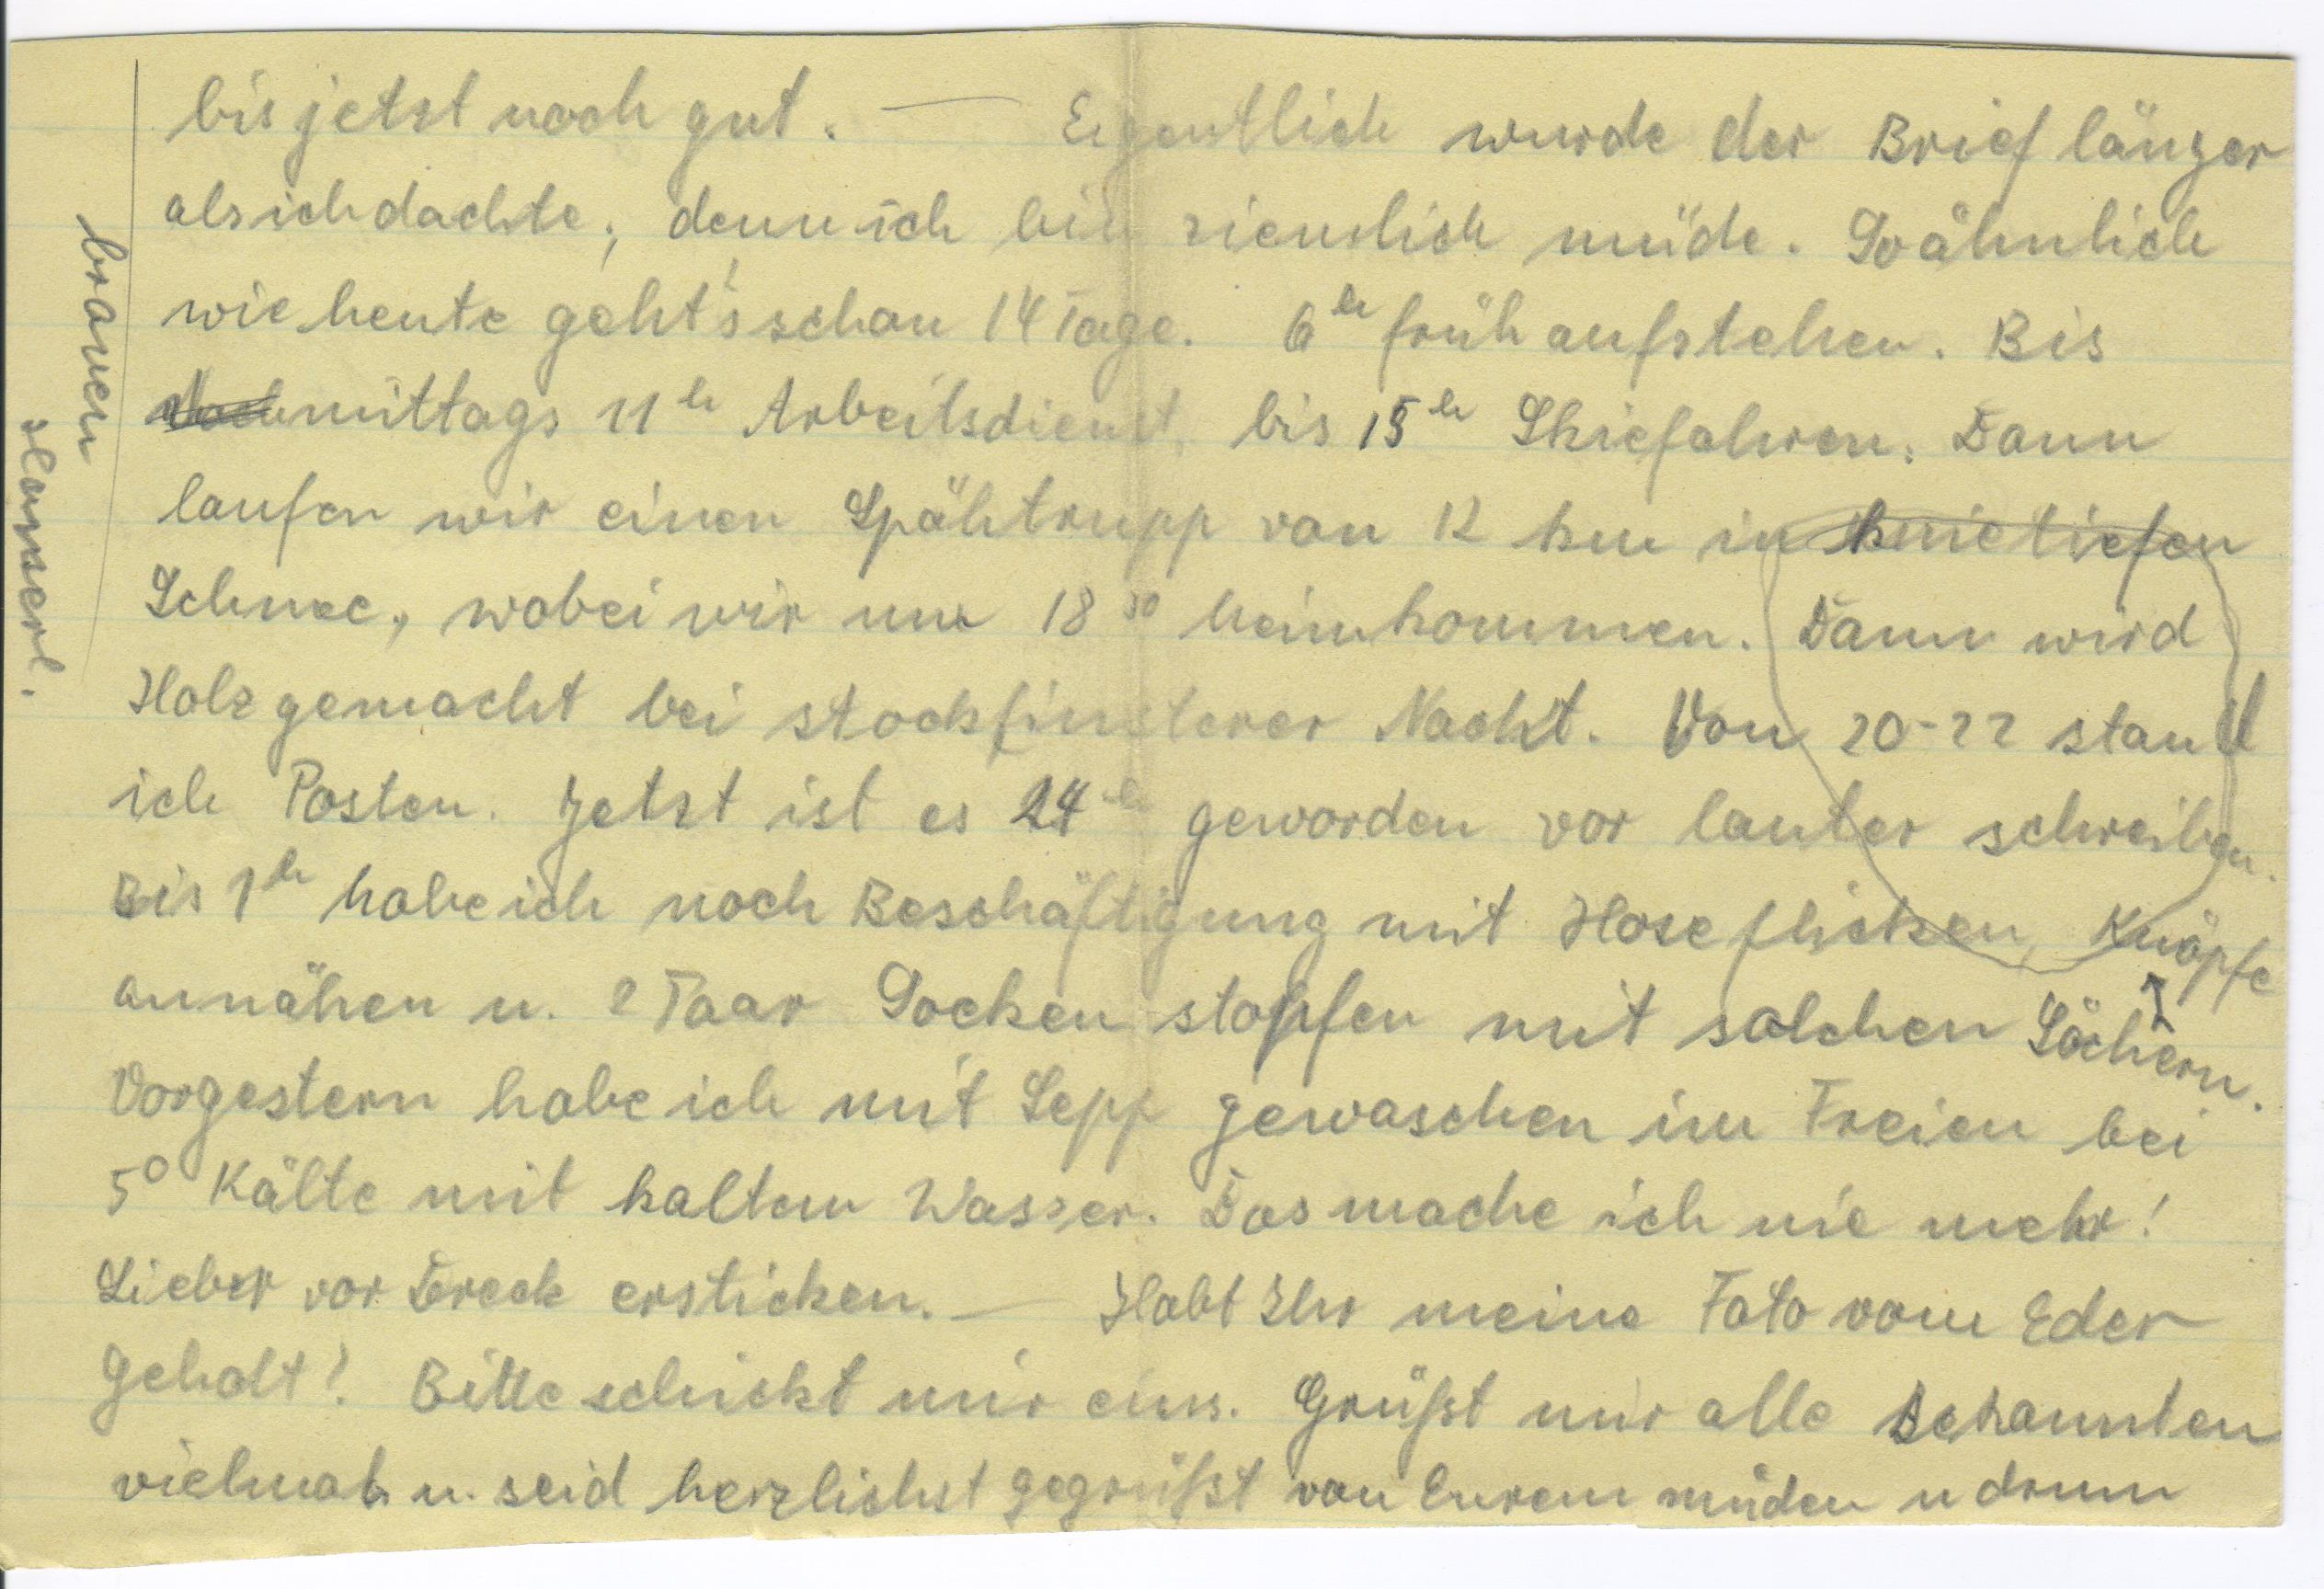 bis jetzt noch gut. — Eigentlich wurde der Brief länger
als ich dachte, denn ich bin ziemlich müde. So ähnlich
wie heute geht's schon 14 Tage. 6 h früh aufstehen. Bis
mittags 11 h Arbeitsdienst, bis 15 h Skiefahren. Dann
laufen wir einen Spähtrupp von 12 km in knietiefen
Schnee, wobei wir um 18 30 heimkommen. Dann wird
Holz gemacht bei stockfinsterer Nacht. Von 20-22 stand
ich Posten. Jetzt ist es 24 h geworden vor lauter schreiben.
Bis 1 h habe ich noch Beschäftigung mit Hose flicken, Knöpfe
annähen u. 2 Paar Socken stopfen mit solchen Löchern.
Vorgestern habe ich mit Sepp gewaschen im Freien bei
5° Kälte mit kaltem Wasser. Das mache ich nie mehr!
Lieber vor Dreck ersticken. — Habt Ihr meine Foto vom Eder
geholt? Bitte schickt mir eins. Grüßt mir alle Bekannten
vielmals u. seid herzlichst gegrüßt von Eurem müden u drum
braven
Hanserl.